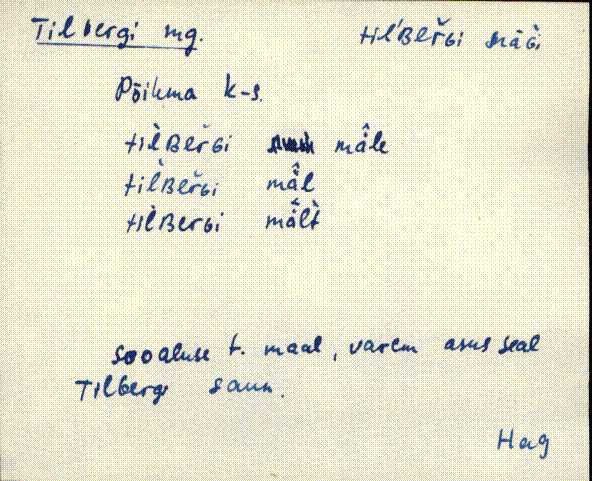 Tilbergi mg. tiĺʙeřɢi mäɢi
Põihma k-s.
tiĺʙeřɢi mâle
tiĺʙeřɢi mâl
tiĺʙerɢi mâlt̀
sooaluse t. maal, varem asus seal
Tilbergi saun.
Hag